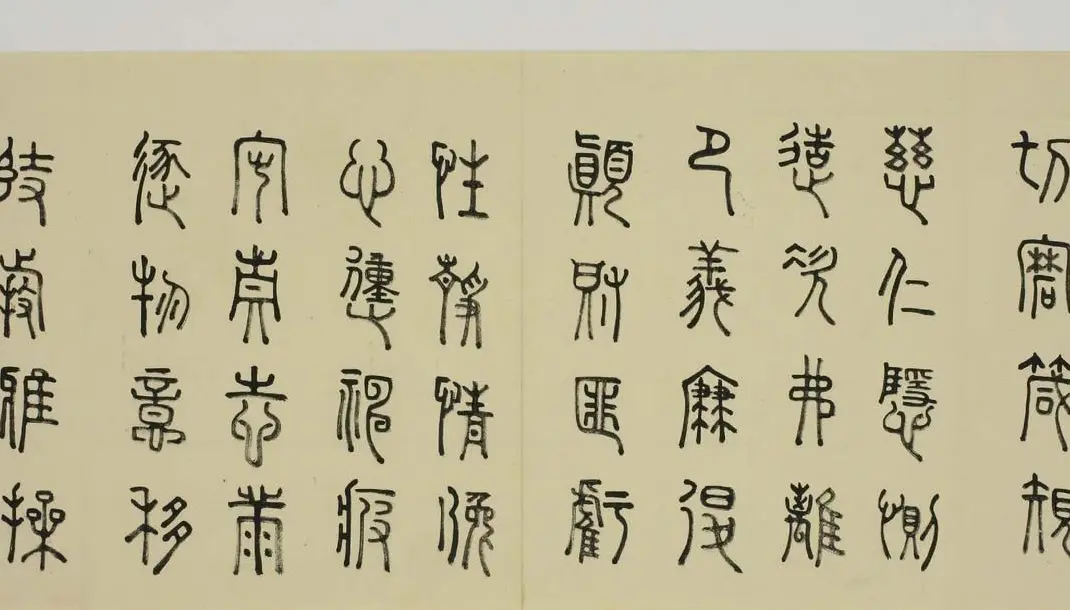 切磨箴規
慈仁隱惻
造次弗離
節義廉退
顛沛匪虧
性靜情逸
心動神疲
守真志滿
逐物意移
雅操